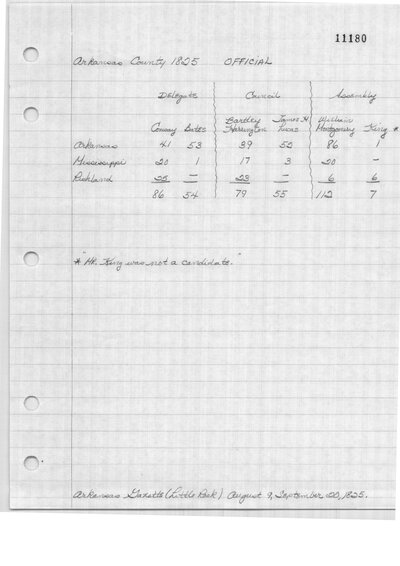 11180
Arkansas County 1825 OFFICIAL
Delegate Council Assembly
Conway Bates Bartley Harrington James H Lucas William Montgomery King *
Arkansas 41 53 39 52 86 1
Mississippi 20 1 17 3 20 –
Richland 25 – 23 – 6 6
86 54 79 55 112 7
* "Mr. King was not a candidate."
Arkansas Gazette (Little Rock) August 9, September 20, 1825.